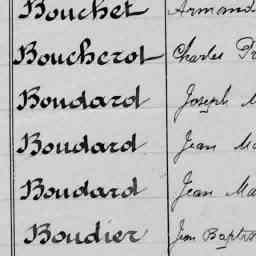 Bouchet Armand
Boucherot Charles
Boudard Joseph
Boudard Jean
Boudard Jean
Boudier Jean